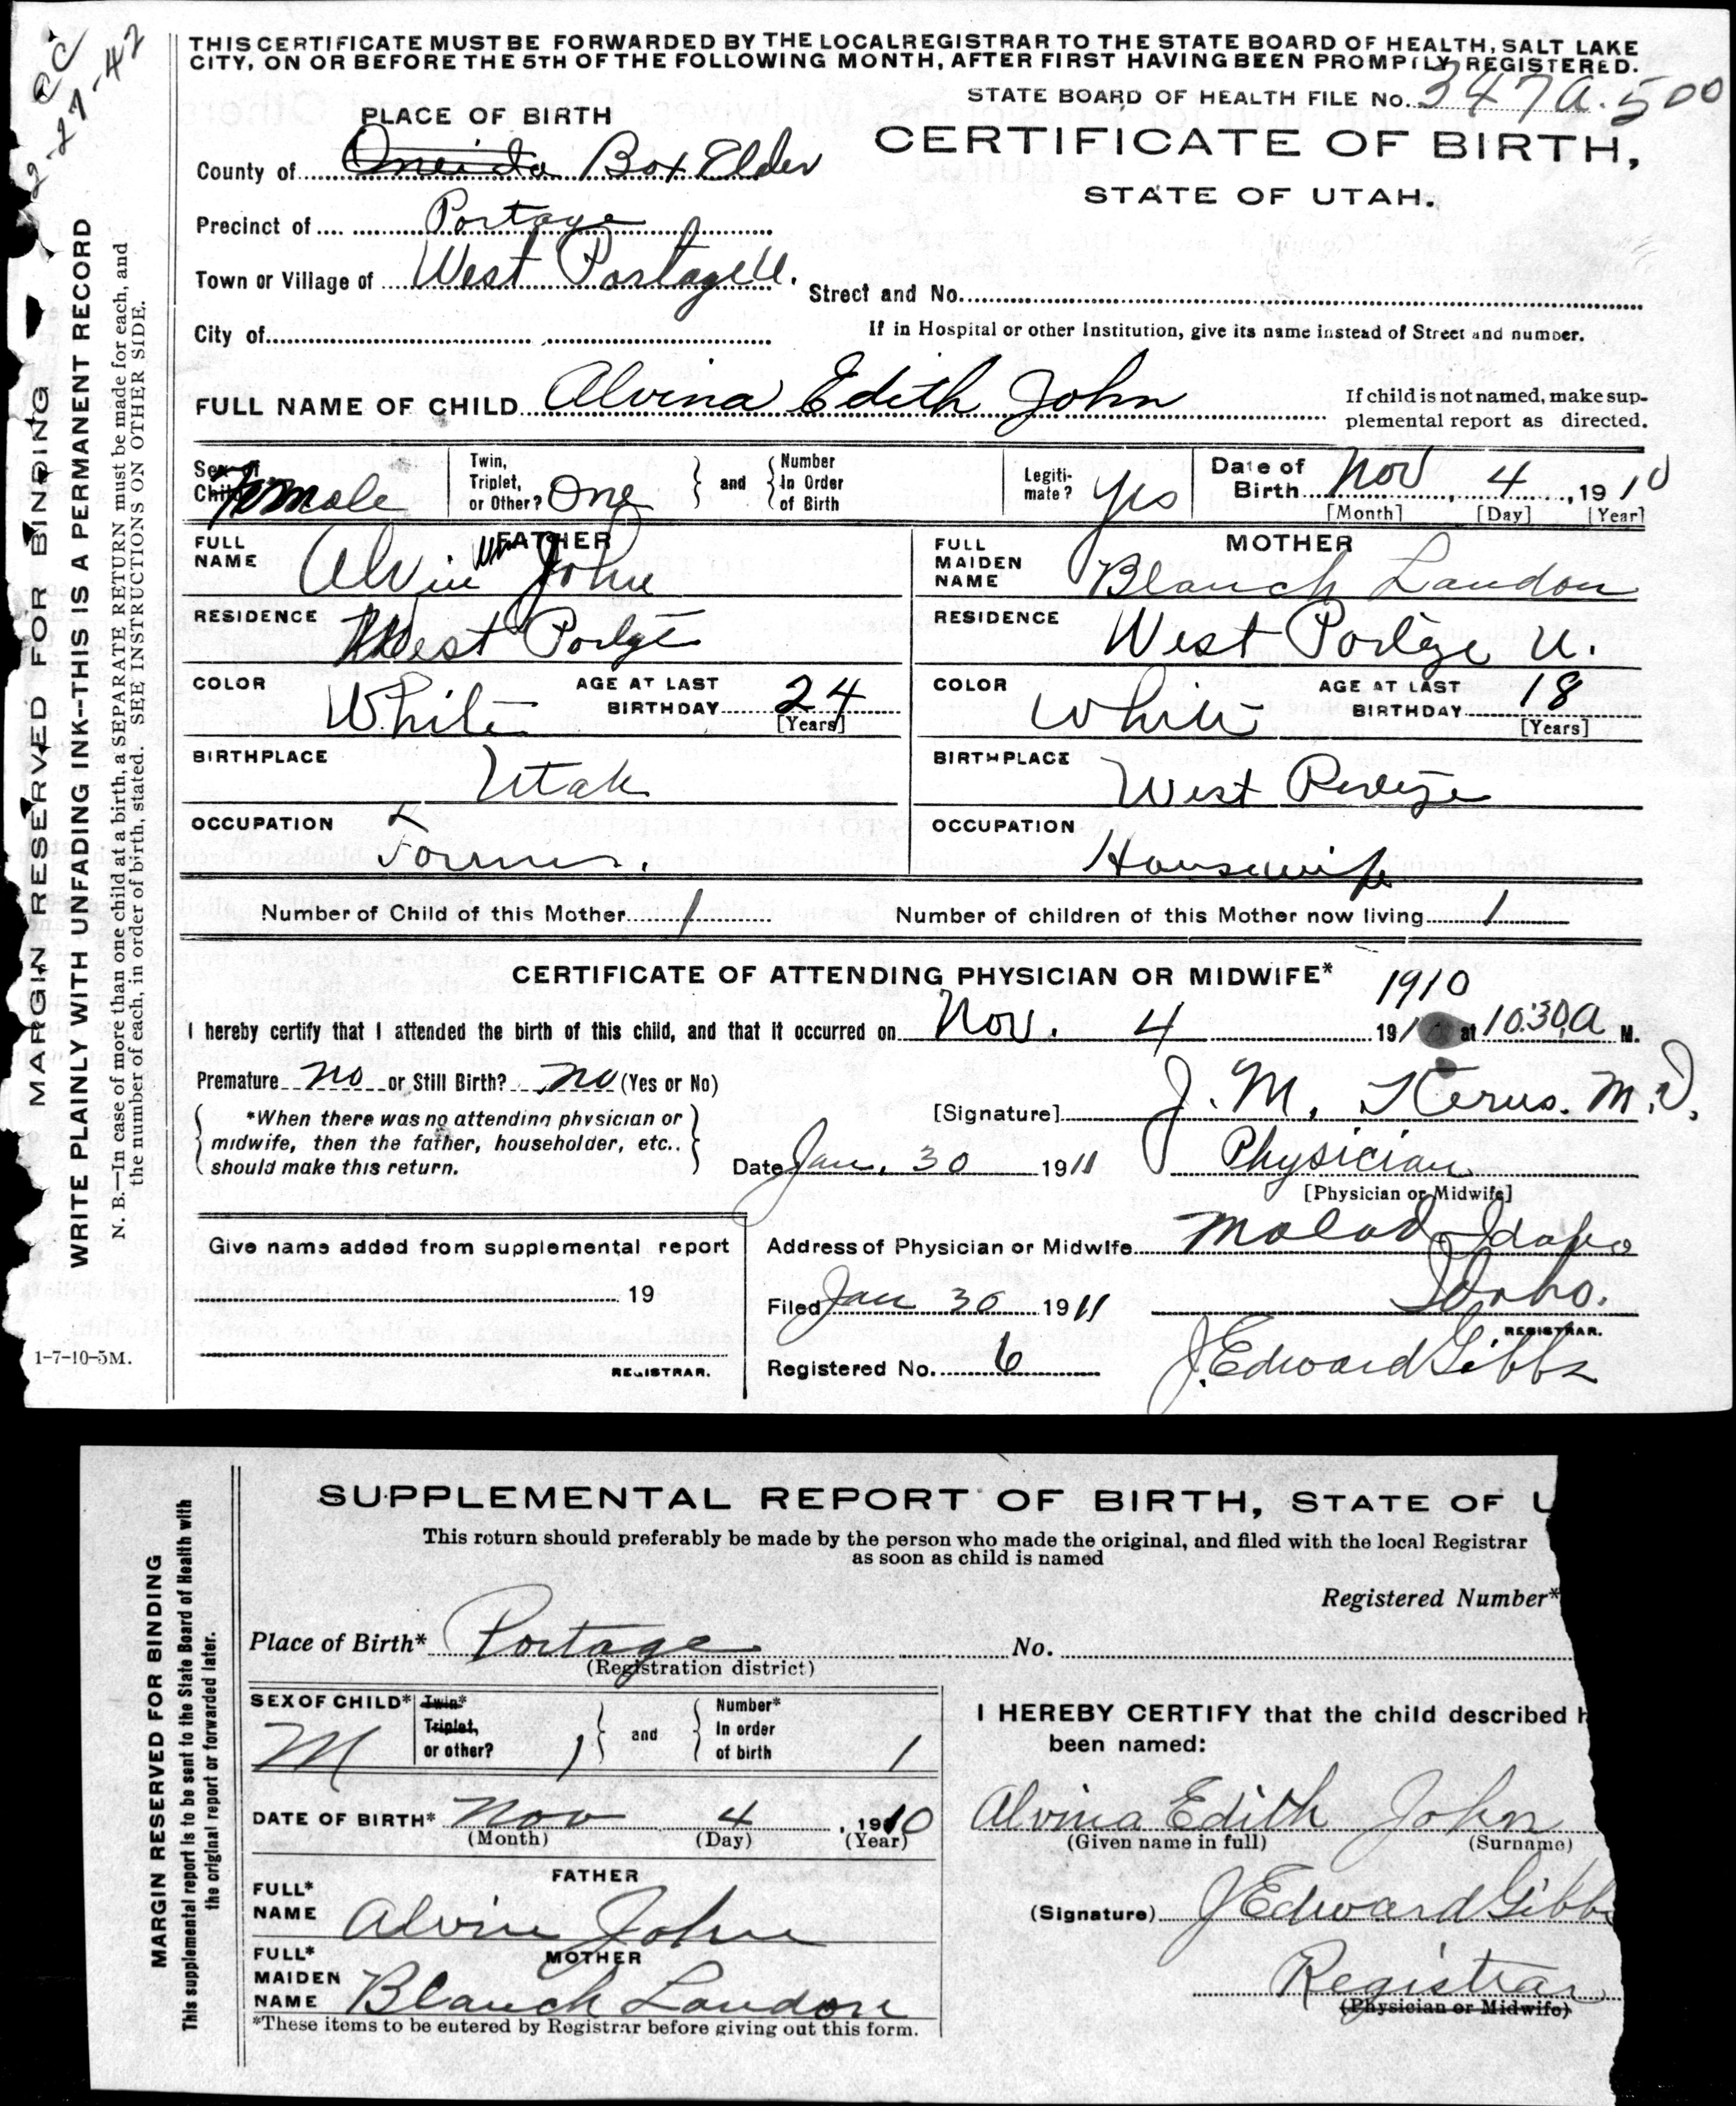 CC
2-27-42
THIS CERTIFICATE MUST BE FORWARDED BY THE LOCAL REGISTRAR TO THE STATE BOARD OF HEALTH, SALT LAKE
CITY, ON OR BEFORE THE 5TH OF THE FOLLOWING MONTH, AFTER FIRST HAVING BEEN PROMPTLY REGISTERED.
STATE BOARD OF HEALTH FILE No. 347a.500
PLACE OF BIRTH
CERTIFICATE OF BIRTH,
STATE OF UTAH.
County of Oneida Box Elder
Precinct of Portage
Town or Village of West Portage U.
Street and No.
City of
If in Hospital or other Institution, give its name instead of Street and number.
FULL NAME OF CHILD Alvina Edith John
If child is not named, make sup-
plemental report as directed.
Sex of Child Female
Twin, Triplet, or Other? One } and { Number In Order of Birth
Legiti-mate? yes
Date of Birth Nov 4, 1910
[Month] [Day] [Year]
FATHER
FULL NAME Alvin Wm John
RESIDENCE West Portge
COLOR White AGE AT LAST BIRTHDAY 24
[Years]
BIRTHPLACE Utah
OCCUPATION Farmer.
MOTHER
FULL MAIDEN NAME Blanch Landon
RESIDENCE West Portge U.
COLOR White AGE AT LAST BIRTHDAY 18
[Years]
BIRTHPLACE West Portge
OCCUPATION Housewife
Number of Child of this Mother 1 Number of children of this Mother now living 1
CERTIFICATE OF ATTENDING PHYSICIAN OR MIDWIFE*
1910
I hereby certify that I attended the birth of this child, and that it occurred on Nov. 4 191 at 10:30 a M.
Premature no or Still Birth? no (Yes or No)
*When there was no attending physician or
midwife, then the father, householder, etc..
should make this return.
[Signature] J. M. Kerns. M.D.
Date Jan. 30 1911 Physician
[Physician or Midwife]
Give name added from supplemental report
19
REGISTRAR.
Address of Physician or Midwife Malad Idaho
Idaho.
Filed Jan 30 1911
REGISTRAR.
Registered No. 6 J. Edward Gibbs
MARGIN RESERVED FOR BINDING
WRITE PLAINLY WITH UNFADING INK--THIS IS A PERMANENT RECORD
N. B.—In case of more than one child at a birth, a SEPARATE RETURN must be made for each, and
the number of each, in order of birth, stated. SEE INSTRUCTIONS ON OTHER SIDE.
1-7-10-5M.
SUPPLEMENTAL REPORT OF BIRTH, STATE OF U
This return should preferably be made by the person who made the original, and filed with the local Registrar
as soon as child is named
Registered Number*
Place of Birth* Portage No.
(Registration district)
SEX OF CHILD* M
Twin* Triplet, or other? 1 } and { Number* In order of birth 1
DATE OF BIRTH* Nov 4, 1910
(Month) (Day) (Year)
FATHER
FULL* NAME Alvin John
MOTHER
FULL* MAIDEN NAME Blanch Landon
*These items to be entered by Registrar before giving out this form.
I HEREBY CERTIFY that the child described h
been named:
Alvina Edith John
(Given name in full) (Surname)
(Signature) J Edward Gibbs
Registrar
(Physician or Midwife)
MARGIN RESERVED FOR BINDING
This supplemental report is to be sent to the State Board of Health with
the original report or forwarded later.